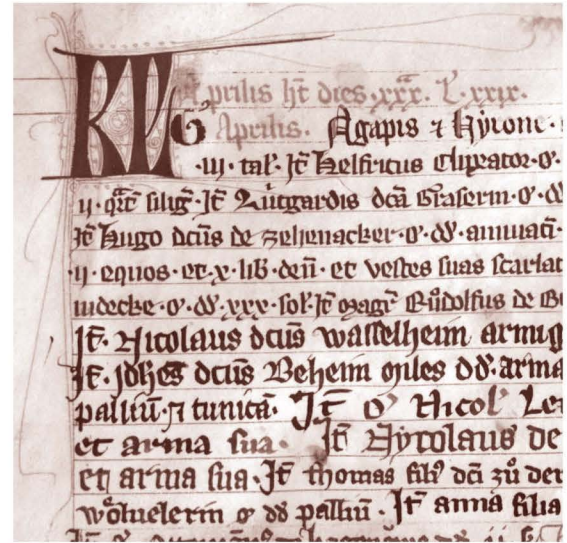 KL Aprilis ht dies xxx. L. xxix.
G Aprilis. Agapis ⁊ hyrone ·
·iij· tal'· It Helfricus cliprator·o·
ij· qrt' silig'· It Lutgardis dca Graserin·o·dd
It Hugo dcus de zehenacker·o·dd·
·ij·equos·et·x·lib·den· et vestes suas scarlat
indecke·o·dd·xxx·sol'·It magr Rudolfus de
It·Nicolaus dcus wasselheim armig
It·Johes dcus Beheim miles dd·arma
palliu·⁊ tunica· It o' Nicol'
et arma sua· It Nycolaus de
et arma sua·It thomas fili' dci zů der
wöluelerin o' dd palliu· It anna filia